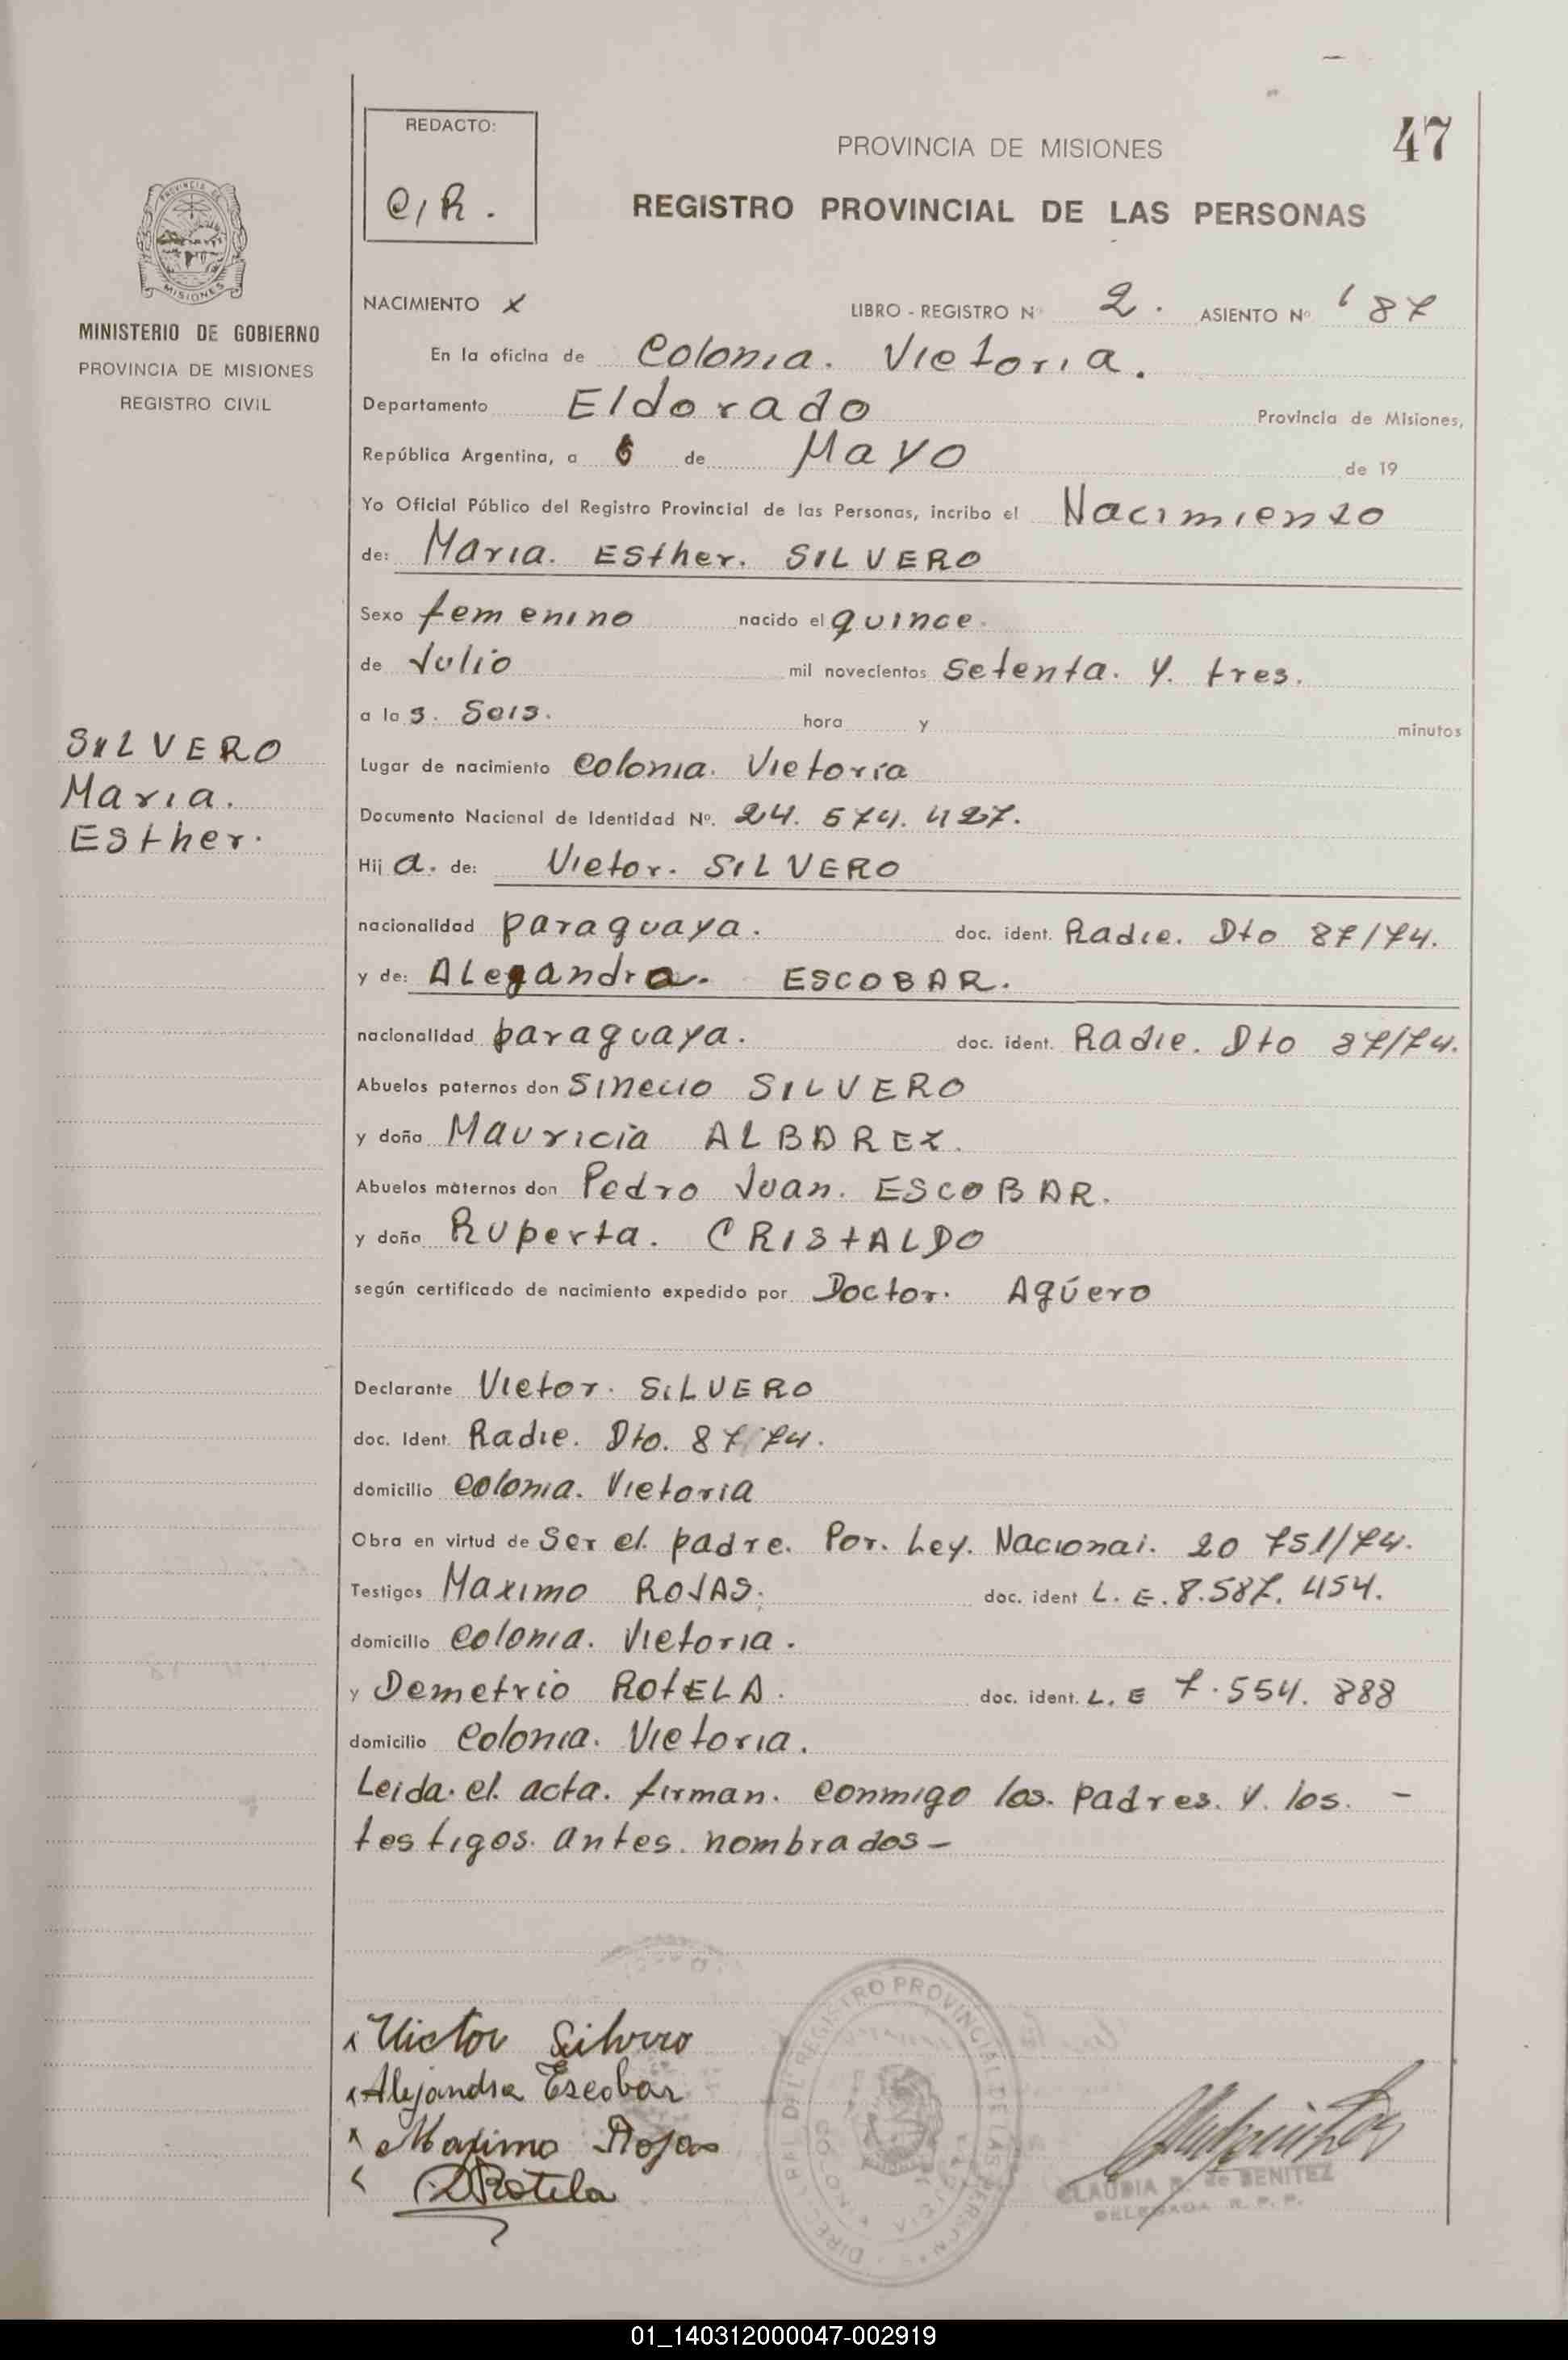 REDACTO:
C/R.
PROVINCIA DE MISIONES
47
REGISTRO PROVINCIAL DE LAS PERSONAS
PROVINCIA DE
MISIONES
MINISTERIO DE GOBIERNO
PROVINCIA DE MISIONES
REGISTRO CIVIL
NACIMIENTO x LIBRO - REGISTRO Nº 2. ASIENTO Nº 87
En la oficina de Colonia. Victoria.
Departamento Eldorado Provincia de Misiones,
República Argentina, a 6 de Mayo de 19
Yo Oficial Público del Registro Provincial de las Personas, incribo el Nacimiento
de: Maria. Esther. SILVERO
Sexo femenino nacido el quince.
de Julio mil novecientos setenta. y. tres.
a las. Seis. hora y minutos
SILVERO
Maria.
Esther.
Lugar de nacimiento Colonia. Victoria
Documento Nacional de Identidad Nº. 24. 574. 427.
Hija. de: Victor. SILVERO
nacionalidad paraguaya. doc. ident. Radic. Dto 87/74.
y de: ALegandra. ESCOBAR.
nacionalidad paraguaya. doc. ident. Radic. Dto 87/74.
Abuelos paternos don Sinecio SILVERO
y doña Mauricia ALBAREZ.
Abuelos maternos don Pedro Juan. ESCOBAR.
y doña Ruperta. CRISTALDO
según certificado de nacimiento expedido por Doctor. Agüero
Declarante Victor. SILVERO
doc. Ident. Radic. Dto. 87/74.
domicilio Colonia. Victoria
Obra en virtud de Ser el. padre. Por. Ley. Nacional. 20 751/74.
Testigos Maximo ROJAS. doc. ident L. E. 8.587. 454.
domicilio Colonia. Victoria.
y Demetrio ROTELA. doc. ident. L. E 7.554. 888
domicilio Colonia. Victoria.
Leida. el. acta. firman. conmigo los. padres. y. los. -
testigos. antes. nombrados-
Victor Silvero
Alejandra Escobar
Maximo Rojas
DRotela
DIREC. GRAL. DEL REGISTRO PROVINCIAL DE LAS PERSONAS
CLAUDIA R. de BENITEZ
DELEGADA R. P. P.
01_140312000047-002919